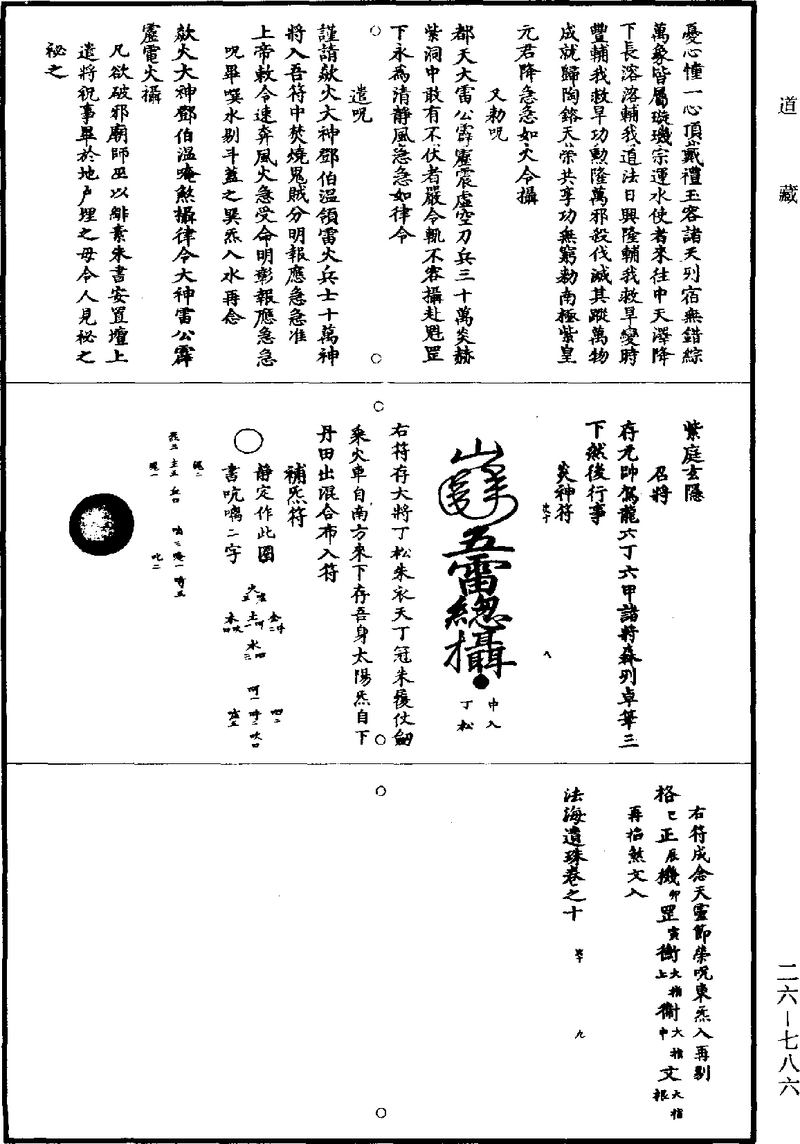 道藏
憂心憧一心頂戴禮玉容諸天列宿無錯綜
萬象皆屬璇璣宗運水使者來往中天澤降
下長溶溶輔我道法日興隆輔我救旱變時
豐輔我救旱功勳隆萬邪殺伐滅其蹤萬物
成就歸陶鎔天榮共享功無窮勅南極紫皇
元君降急急如火令攝
又勅呪
都天大雷公霹靂震虛空刀兵三十萬炎赫
紫洞中敢有不伏者嚴令輒不容攝赴魁罡
下永為清靜風急急如律令
遣呪
謹請歘火大神鄧伯溫領雷火兵士十萬神
將入吾符中焚燒鬼賊分明報應急急准
上帝敕令速奔風火急受命明彰報應急急
呪畢噀水剔斗蓋之巽炁入水再念
歘火大神鄧伯溫唵煞攝律令大神雷公霹
靂電火攝
凡欲破邪廟師巫以緋素朱書安置壇上
遣將祝事畢於地戶埋之毋令人見秘之
祕之
紫庭玄隱
召將
存元帥駕龍六丁六甲諸將森列卓筆三
下然後行事
炎神符
五雷總攝
中入
丁松
右符存大將丁松朱衣天丁冠朱履仗劒
乘火車自南方來下存吾身太陽炁自下
丹田出混合布入符
補炁符
靜定作此圈
書吭嚆二字
右符成念天靈節榮呪東炁入再剔
格巳正辰機卯罡寅衝大指上衝大指中文大指根
再掐煞文入
法海遺珠卷之十
二六—七八六